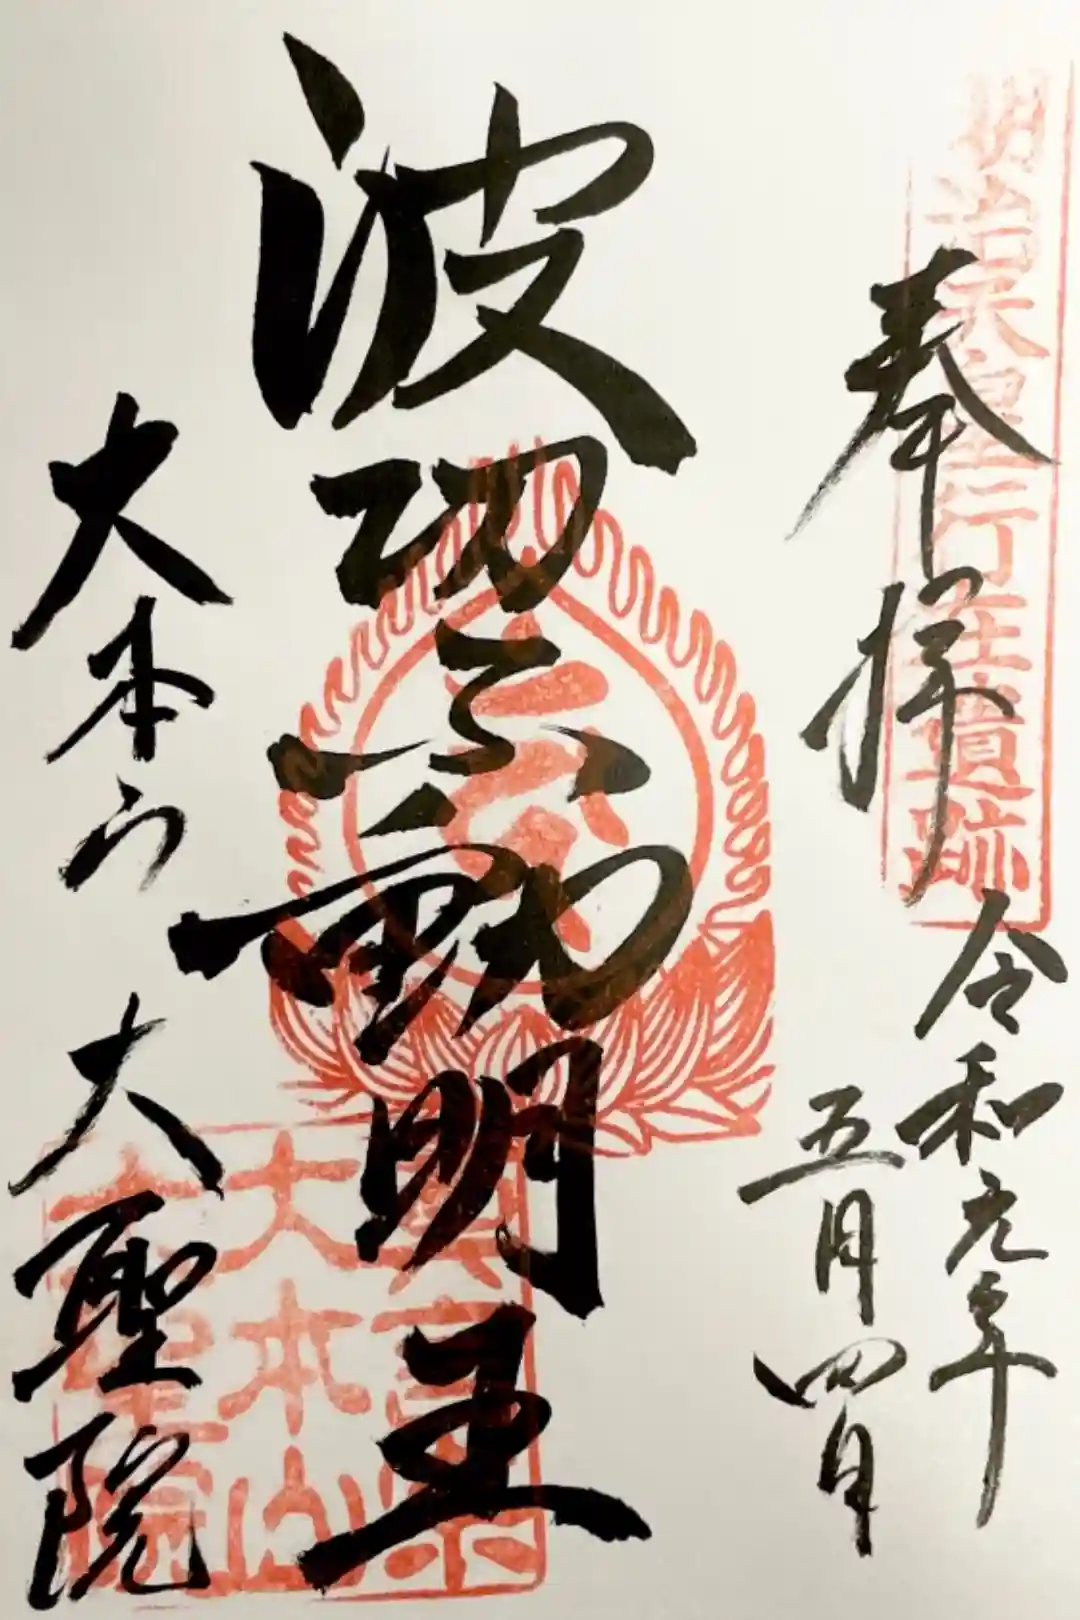 明治天皇行在遺跡
奉拝
令和元年
五月四日
波切不動明王
大本山 大聖院
真言宗
大本山
大聖院